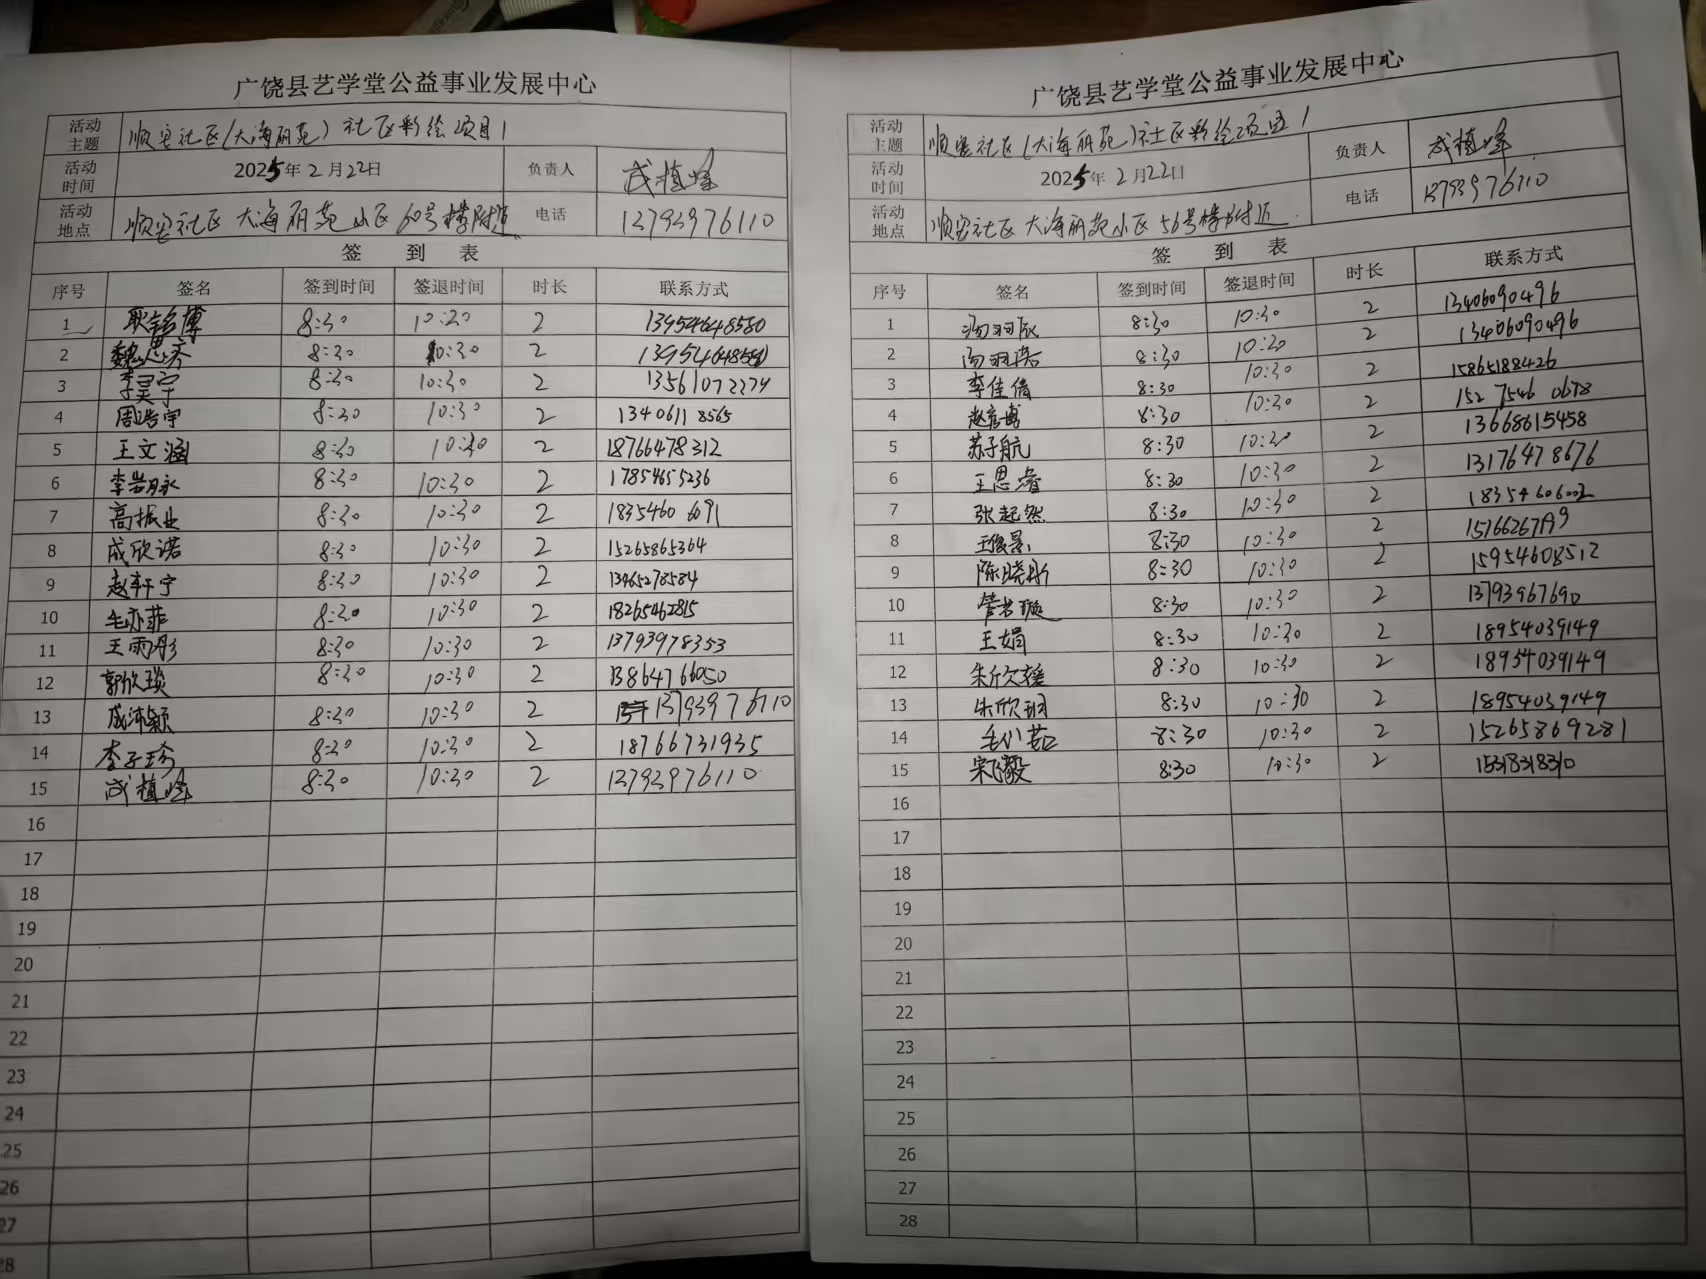 广饶县艺学堂公益事业发展中心
活动主题 顺安社区(大海丽苑)社区彩绘项目1
活动时间 2025年2月22日 负责人 成植峰
活动地点 顺安社区 大海丽苑小区 60号楼附近 电话 13793976110
签到表
序号 签名 签到时间 签退时间 时长 联系方式
1 耿铭博 8:30 10:30 2 13954648580
2 魏思齐 8:30 10:30 2
3 李昊宇 8:30 10:30 2 13561072274
4 周浩宇 8:30 10:30 2 13406118565
5 王文涵 8:30 10:30 2 18766478312
6 李岩脉 8:30 10:30 2 17854655236
7 高振业 8:30 10:30 2 18354606091
8 成欣诺 8:30 10:30 2 15265865364
9 赵轩宇 8:30 10:30 2 13465278584
10 毛亦菲 8:30 10:30 2 18265462815
11 王雨彤 8:30 10:30 2 13793978353
12 郭欣琰 8:30 10:30 2 13864766050
13 成沛颖 8:30 10:30 2 13793976110
14 李子珍 8:30 10:30 2 18766731935
15 成植峰 8:30 10:30 2 13793976110
16
17
18
19
20
21
22
23
24
25
26
27
28
广饶县艺学堂公益事业发展中心
活动主题 顺安社区(大海丽苑)社区彩绘项目1
活动时间 2025年2月22日 负责人 成植峰
活动地点 顺安社区 大海丽苑小区 56号楼附近 电话 13793976110
签到表
序号 签名 签到时间 签退时间 时长 联系方式
1 汤羽辰 8:30 10:30 2 13406090496
2 汤羽诺 8:30 10:30 2 13406090496
3 李佳倩 8:30 10:30 2 15865188426
4 赵彦博 8:30 10:30 2 15275460678
5 苏子航 8:30 10:30 2 13668615458
6 王思睿 8:30 10:30 2 13176478676
7 张起然 8:30 10:30 2 18354606002
8 王俊景 8:30 10:30 2
9 陈晓彤 8:30 10:30 2 15954608512
10 管若璇 8:30 10:30 2 13793967690
11 王娟 8:30 10:30 2 18954039149
12 朱欣媛 8:30 10:30 2 18954039149
13 朱欣玥 8:30 10:30 2 18954039149
14 毛小茹 8:30 10:30 2 15265869281
15 宋飞毅 8:30 10:30 2 15318318310
16
17
18
19
20
21
22
23
24
25
26
27
28